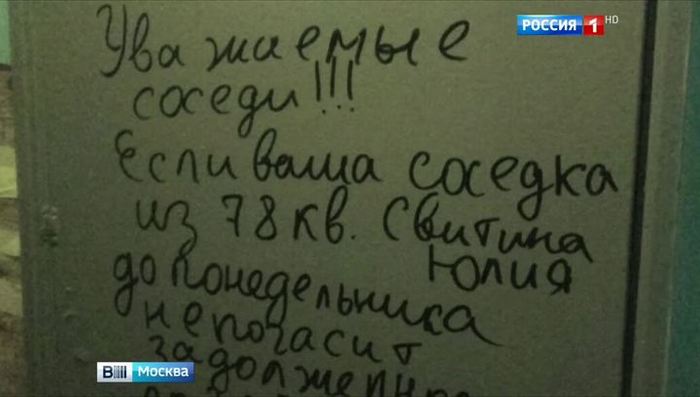 РОССИЯ 1 HD
Уважаемые
соседи!!!
Если ваша соседка
из 78 кв. Свитина
Юлия
до понедельника
непогасит
задолженно
ВЕСТИ Москва